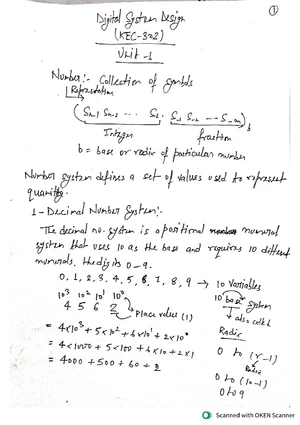 ①
Digital System Design
(KEC-302)
Unit-1
Number:- Collection of symbols
Representation
(Sn-1 Sn-2 ... S0. S-1 S-2 --- S-m)b
Integer fraction
b = base or radix of particular number
Number system defines a set of values used to represent
quantity.
1 - Decimal Number System:-
The decimal no. system is a positional numeral
system that uses 10 as the base and requires 10 different
numerals, the digits 0-9.
0, 1, 2, 3, 4, 5, 6, 7, 8, 9 → 10 Variables
10³ 10² 10¹ 10⁰
4 5 6 2 → place value (1)
= 4×10³ + 5×10² + 6×10¹ + 2×10⁰
= 4×1000 + 5×100 + 6×10 + 2×1
= 4000 + 500 + 60 + 2
10 base System
↓ also called
Radix
0 to (r-1)
Radix
0 to (10-1)
0 to 9
Scanned with OKEN Scanner